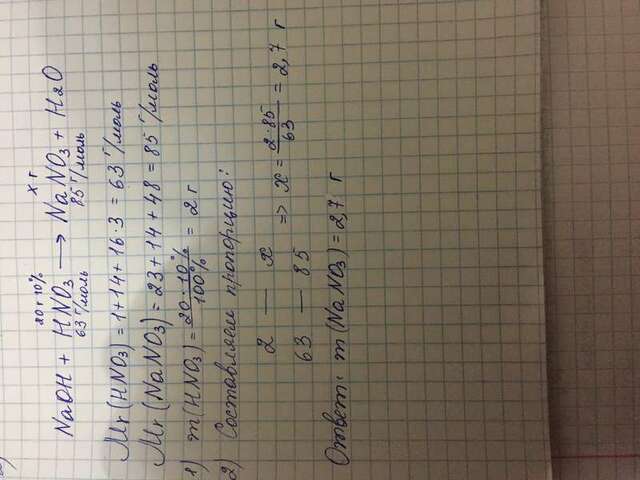 20 г 10% x г
NaOH + HNO₃ → NaNO₃ + H₂O
63 г/моль 85 г/моль
Mr (HNO₃) = 1+14+16·3 = 63 г/моль
Mr (NaNO₃) = 23+14+48 = 85 г/моль
1) m(HNO₃) = 20·10% / 100% = 2 г
2) Составляем пропорцию:
2 — x
63 — 85
=> x = 2·85 / 63 = 2,7 г
Ответ: m(NaNO₃) = 2,7 г